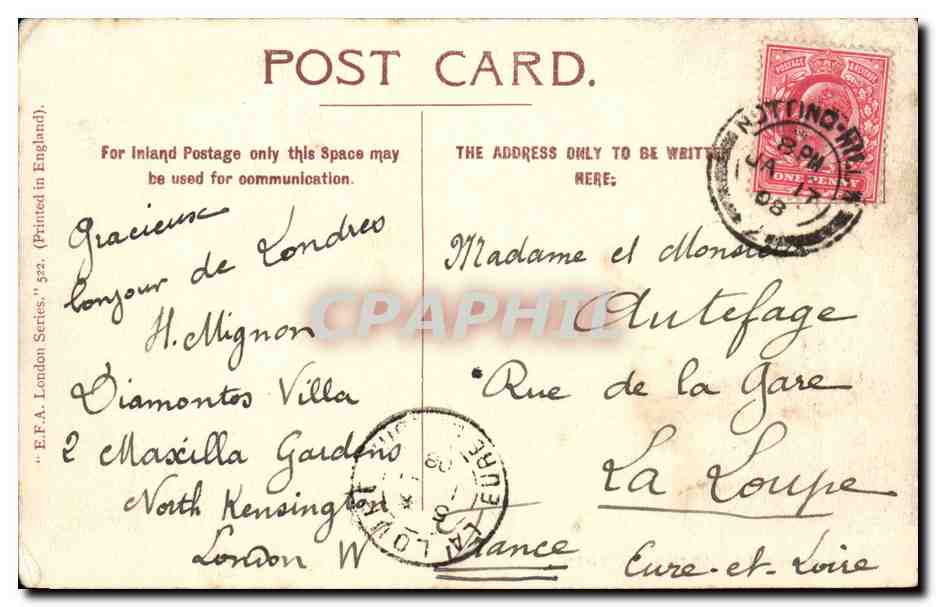 POST CARD.
For Inland Postage only this Space may
be used for communication.
THE ADDRESS ONLY TO BE WRITTEN
HERE:
POSTAGE REVENUE
ONE PENNY
NOTTING-HILL
8 PM
JA 17
08
Gracieux
bonjour de Londres
H. Mignon
Diamontos Villa
2 Maxilla Gardens
North Kensington
London W
Madame et Monsieur
Autefage
Rue de la Gare
La Loupe
Eure-et-Loire
France
CPAPHIL
LA LOUPE
EURE
08
"E.F.A. London Series." 522. (Printed in England).